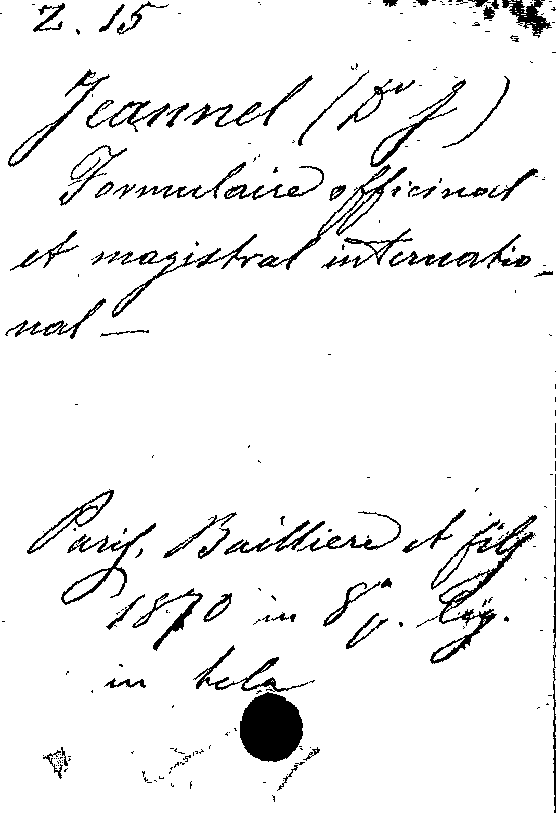 Z. 15
Jeannel (Dr J)
Formulaire officinal
et magistral internatio-
nal —
Paris, Baillière et fils
1870 in 8º. Lig.
in tela